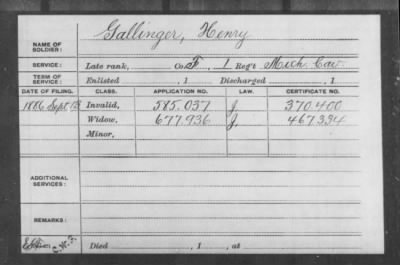 Gallinger, Henry
NAME OF SOLDIER:
SERVICE: Late rank, Co. F, 1 Reg't Mich. Cav.
TERM OF SERVICE: Enlisted , 1 Discharged , 1
DATE OF FILING. CLASS. APPLICATION NO. LAW. CERTIFICATE NO.
1886 Sept. Invalid, 585.037 J. 370.400
Widow, 677.936 J. 467.334
Minor,
ADDITIONAL SERVICES:
REMARKS:
Died , 1 , at